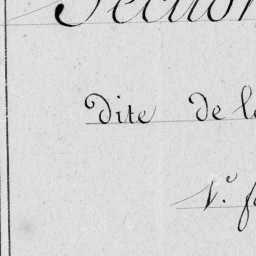 Section
dite de l
1.e f